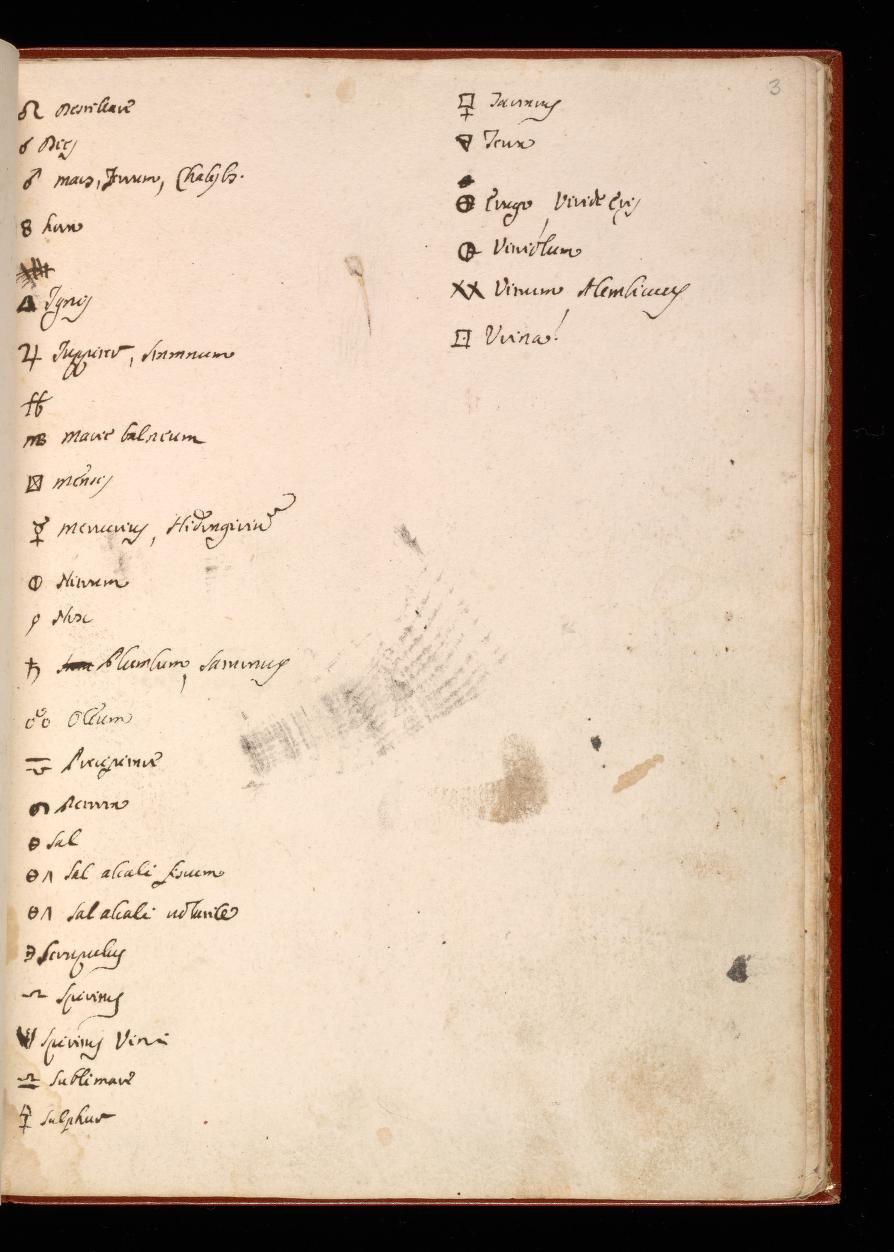 ♌ Destilare
☌ Dies
♂ mars, Ferrum, Chalybs.
8 hora
🜂 Ignis
♃ Juppiter, Stannum
℔
MB mariæ balneum
mensis
☿ mercurius, Hidrargirium
🜕 Nitrum
Nox
♄ Plumbum, Saturnus
Oleum
Precipitare
Retorta
🜔 Sal
Sal alcali fixum
Sal alcali volatile
℈ Scrupulus
Spiritus
Spiritus Vini
Sublimare
🜍 Sulphur
3
Tartarus
🜃 Terra
🜨 Erugo Viride Eris
Vitriolum
XX Vitrum, Alembicus
Urina.